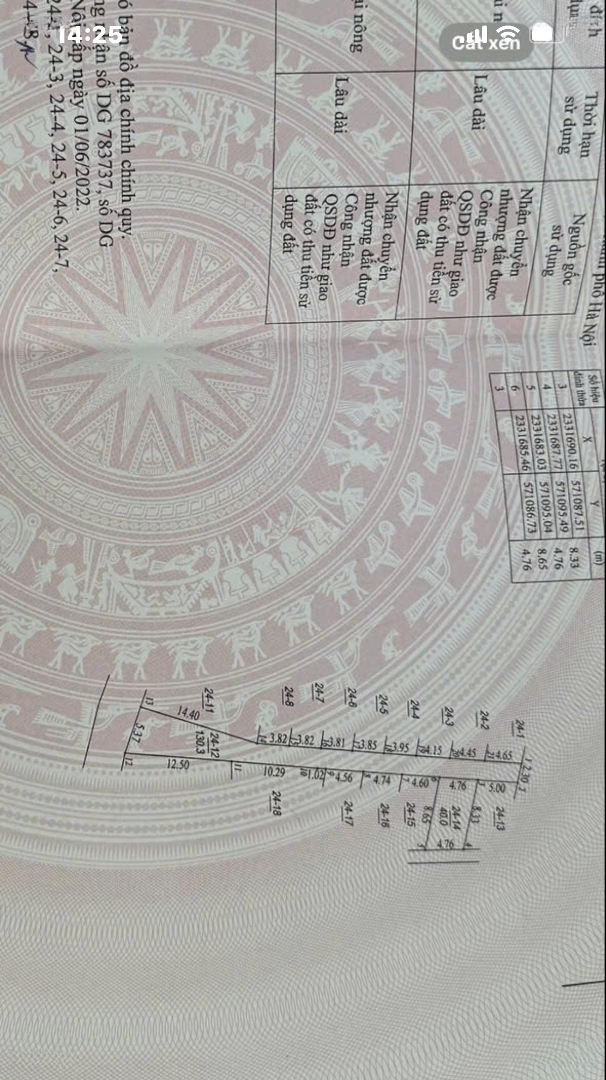 14:25
Cắt xén
đích
Thời hạn
sử dụng
Nguồn gốc
sử dụng
phố Hà Nội
Lâu dài
Nhận chuyển
nhượng đất được
Công nhận
QSDĐ như giao
đất có thu tiền sử
dụng đất
nông
Lâu dài
Nhận chuyển
nhượng đất được
Công nhận
QSDĐ như giao
đất có thu tiền sử
dụng đất
ó bản đồ địa chính chính quy.
ận số DG 783737, số DG
ấp ngày 01/06/2022.
24-3, 24-4, 24-5, 24-6, 24-7,
Số hiệu
đỉnh thửa
X
Y
(m)
3 2331690.16 571087.51 8.33
4 2331687.77 571095.49 4.76
5 2331683.03 571095.04 8.65
6 2331685.46 571086.73 4.76
3
24-1
24-2
24-3
24-4
24-5
24-6
24-7
24-8
24-11
1 2.30 2
4.65
4.45
4.15
3.95
3.85
3.81
3.82
3.82
14.40
13
5.37
12
24-12
130.3
12.50
11
10.29
1.02
4.56
4.74
4.60
4.76
5.00
24-13
8.33
24-14
40.0
4.76
8.65
24-15
24-16
24-17
24-18